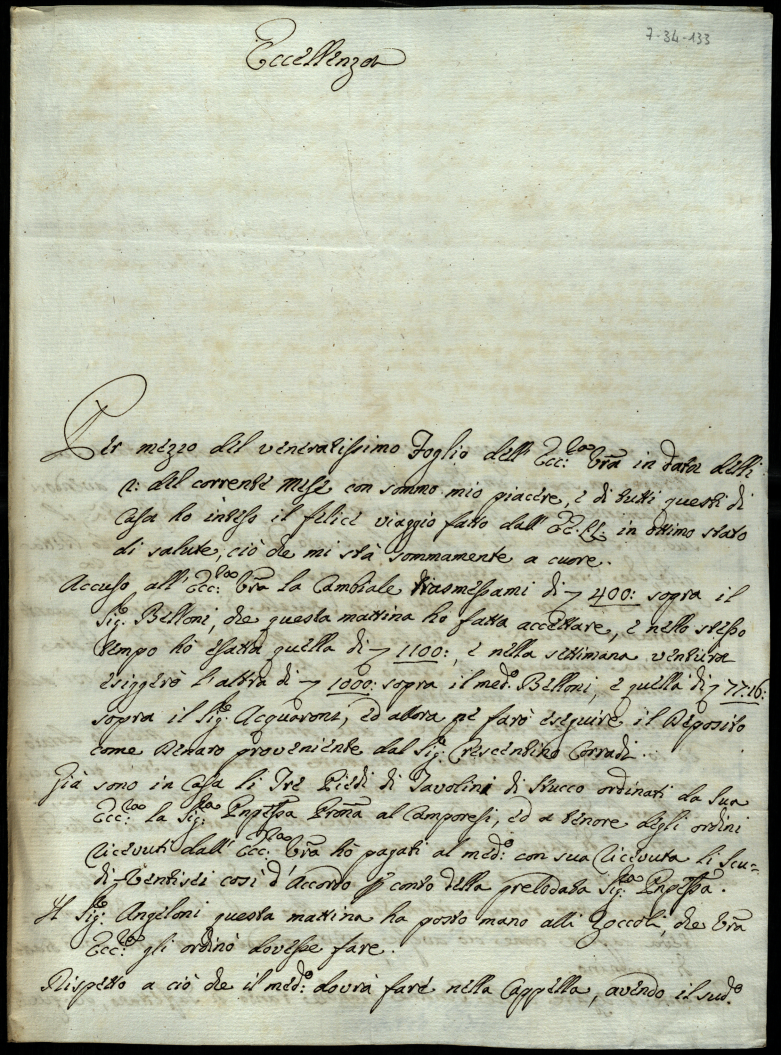 7-34-133
Eccellenza
Per mezzo del veneratissimo Foglio dell' Ecc:za Vra in data delli
2: del corrente Mese con sommo mio piacere, e di tutti questi di
Casa ho inteso il felice viaggio fatto dall' EE: LL: in ottimo stato
di salute, ciò che mi stà sommamente a cuore.
Accuso all' Ecc:za Vra la Cambiale trasmessami di 400: sopra il
Sig:e Belloni, che questa mattina ho fatta accettare, e nello stesso
tempo hò esatta quella di 1100:, e nella settimana ventura
esiggerò l'altra di 1000: sopra il med:o Belloni, e quella di 77:16:
sopra il Sig:e Acquaroni, ed allora ne farò eseguire il Deposito
come Denaro proveniente dal Sig:e Crescentino Corradi.
Già sono in Casa li Tre Piedi di Tavolini di Stucco ordinati da Sua
Ecc:za la Sig:ra Pnpessa Prona al Camporesi, ed a tenore degli ordini
ricevuti dall' Ecc:za Vra hò pagati al med:o con sua ricevuta li Scu=
di Ventisei così d'Accordo p conto della prelodata Sig:ra Pnpessa.
Il Sig:e Angeloni questa mattina ha posto mano alli Zoccoli, che Vra
Ecc:za gli ordinò dovesse fare.
Rispetto a ciò che il med:o dovrà fare nella Cappella, avendo il sud:o